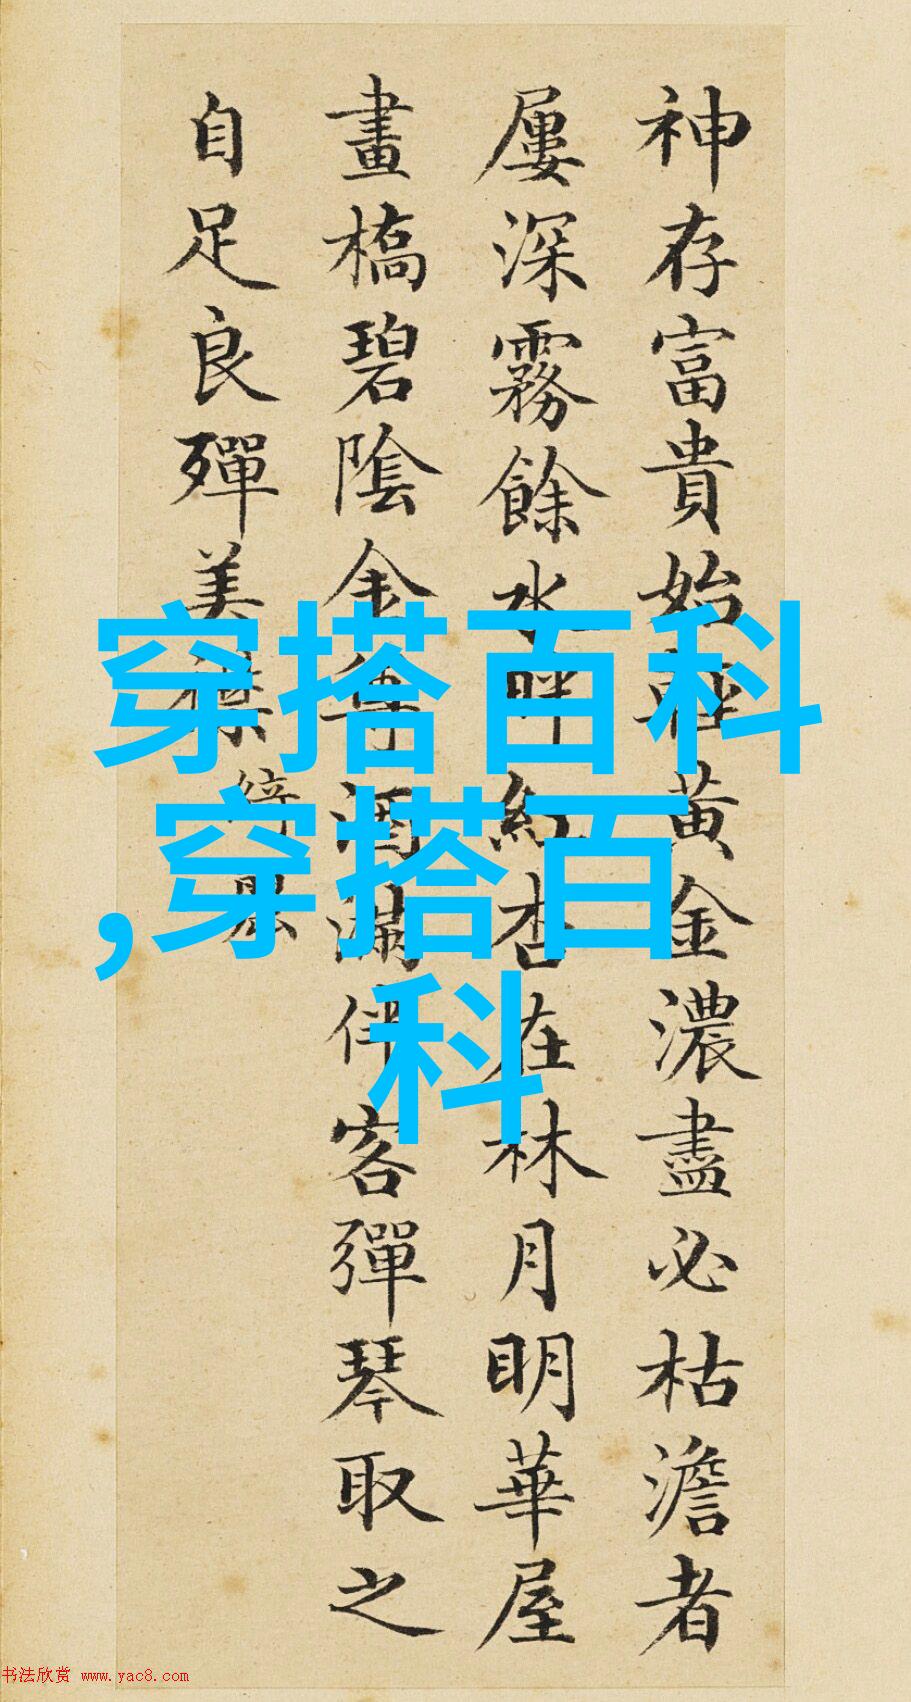 神存富貴始輕黃金濃盡必枯澹者
屢深霧餘水畔紅杏在林月明華屋
畫橋碧陰金尊酒滿伴客彈琴取之
自足良殫美襟
綺
穿搭百科
,穿搭百
科
书法欣赏 www.yac8.com